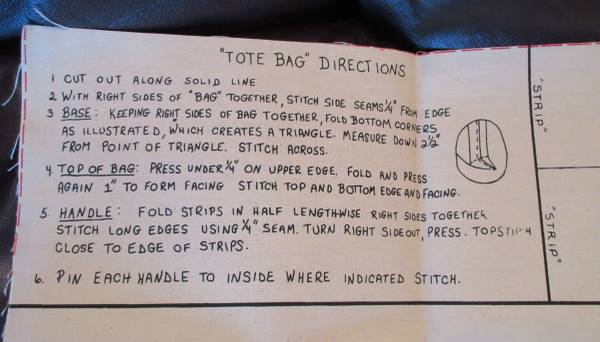 "TOTE BAG" DIRECTIONS
1 CUT OUT ALONG SOLID LINE
2 WITH RIGHT SIDES OF "BAG" TOGETHER, STITCH SIDE SEAMS 1/4" FROM EDGE
3 BASE: KEEPING RIGHT SIDES OF BAG TOGETHER, FOLD BOTTOM CORNERS
AS ILLUSTRATED, WHICH CREATES A TRIANGLE. MEASURE DOWN 2 1/2"
FROM POINT OF TRIANGLE. STITCH ACROSS.
4. TOP OF BAG: PRESS UNDER 1/4" ON UPPER EDGE. FOLD AND PRESS
AGAIN 1" TO FORM FACING STITCH TOP AND BOTTOM EDGE AND FACING.
5. HANDLE: FOLD STRIPS IN HALF LENGTHWISE RIGHT SIDES TOGETHER
STITCH LONG EDGES USING 1/4" SEAM. TURN RIGHT SIDE OUT, PRESS. TOPSTITCH
CLOSE TO EDGE OF STRIPS.
6. PIN EACH HANDLE TO INSIDE WHERE INDICATED STITCH.
"STRIP"
"STRIP"